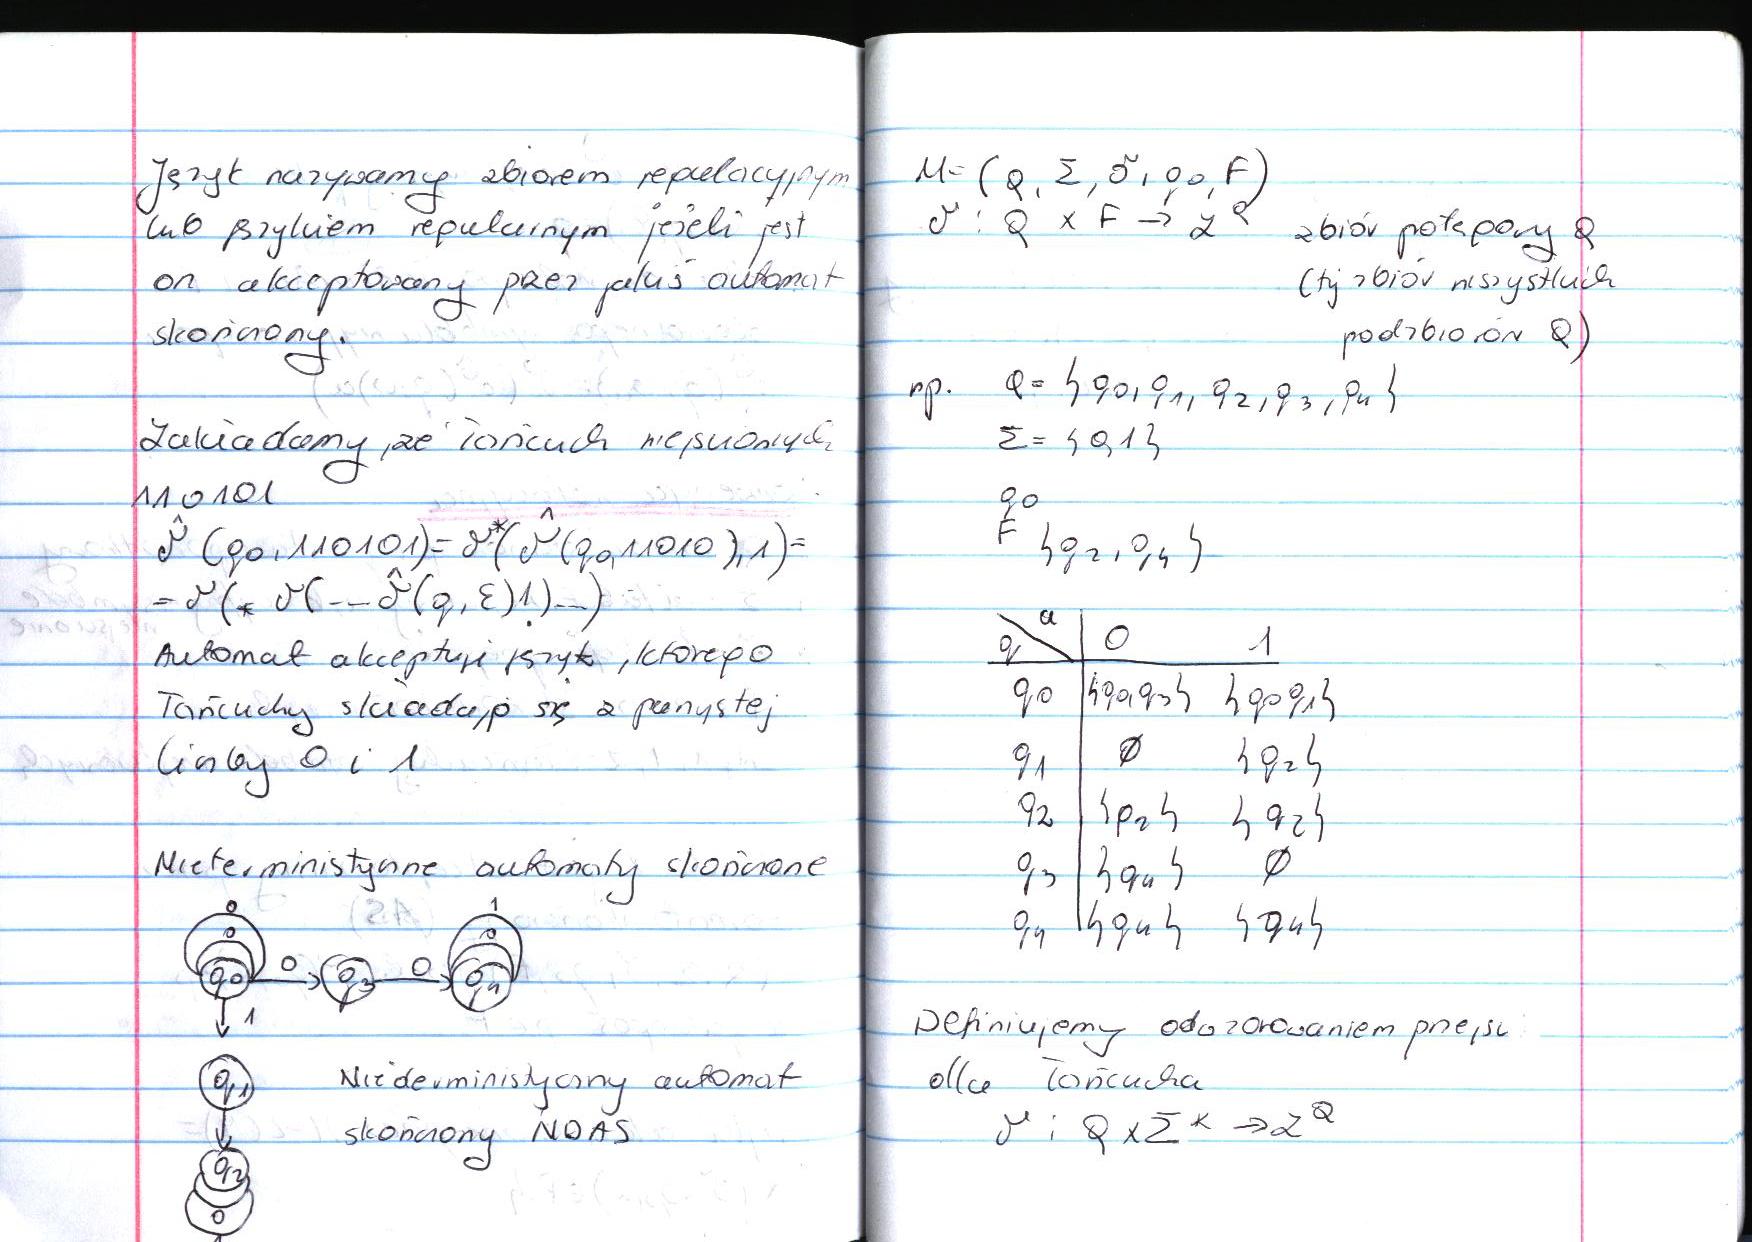 Język nazywamy zbiorem regulacyjnym
lub językiem regularnym jeżeli jest
on akceptowany przez jakiś automat
skończony.
Zakładamy, że łańcuch wejściowych
110101
δ̂ (q0, 110101) = δ*(δ̂(q0, 11010), 1) =
= δ(* δ(--- δ̂(q, ε)1)---)
Automat akceptuje język, którego
łańcuchy składają się z parzystej
liczby 0 i 1
Nieterministyczne automaty skończone
0
0
q0 0 q3 0 q4
1
0
1
q1
q2
0
Niederministyczny automat
skończony NDAS
M = (Q, Σ, δ, q0, F)
δ : Q × F → 2^Q zbiór potęgowy Q
(tj zbiór wszystkich
podzbiorów Q)
np. Q = {q0, q1, q2, q3, q4}
Σ = {0, 1}
q0
F {q2, q4}
q a 0 1
q0 {q0, q3} {q0 q1}
q1 ∅ {q2}
q2 {q2} {q2}
q3 {q4} ∅
q4 {q4} {q4}
Definiujemy odwzorowaniem przejść
dla łańcucha
δ : Q × Σ* → 2^Q